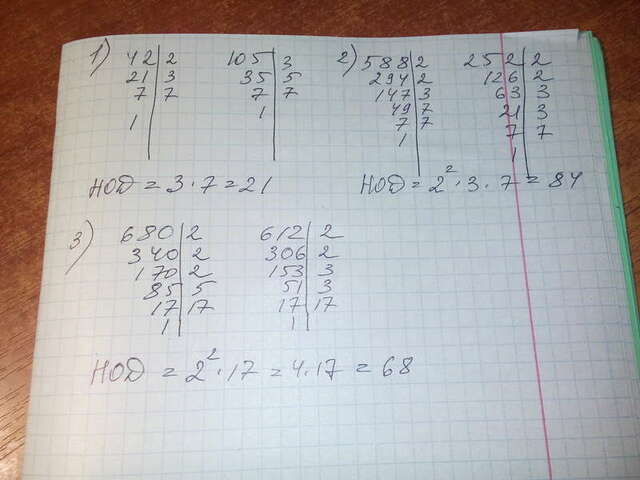 1) 42|2 105|3 2) 588|2 252|2
21|3 35|5 294|2 126|2
7|7 7|7 147|3 63|3
1 1 49|7 21|3
7|7 7|7
1 1
НОД = 3 · 7 = 21 НОД = 2² · 3 · 7 = 84
3) 680|2 612|2
340|2 306|2
170|2 153|3
85|5 51|3
17|17 17|17
1 1
НОД = 2² · 17 = 4 · 17 = 68